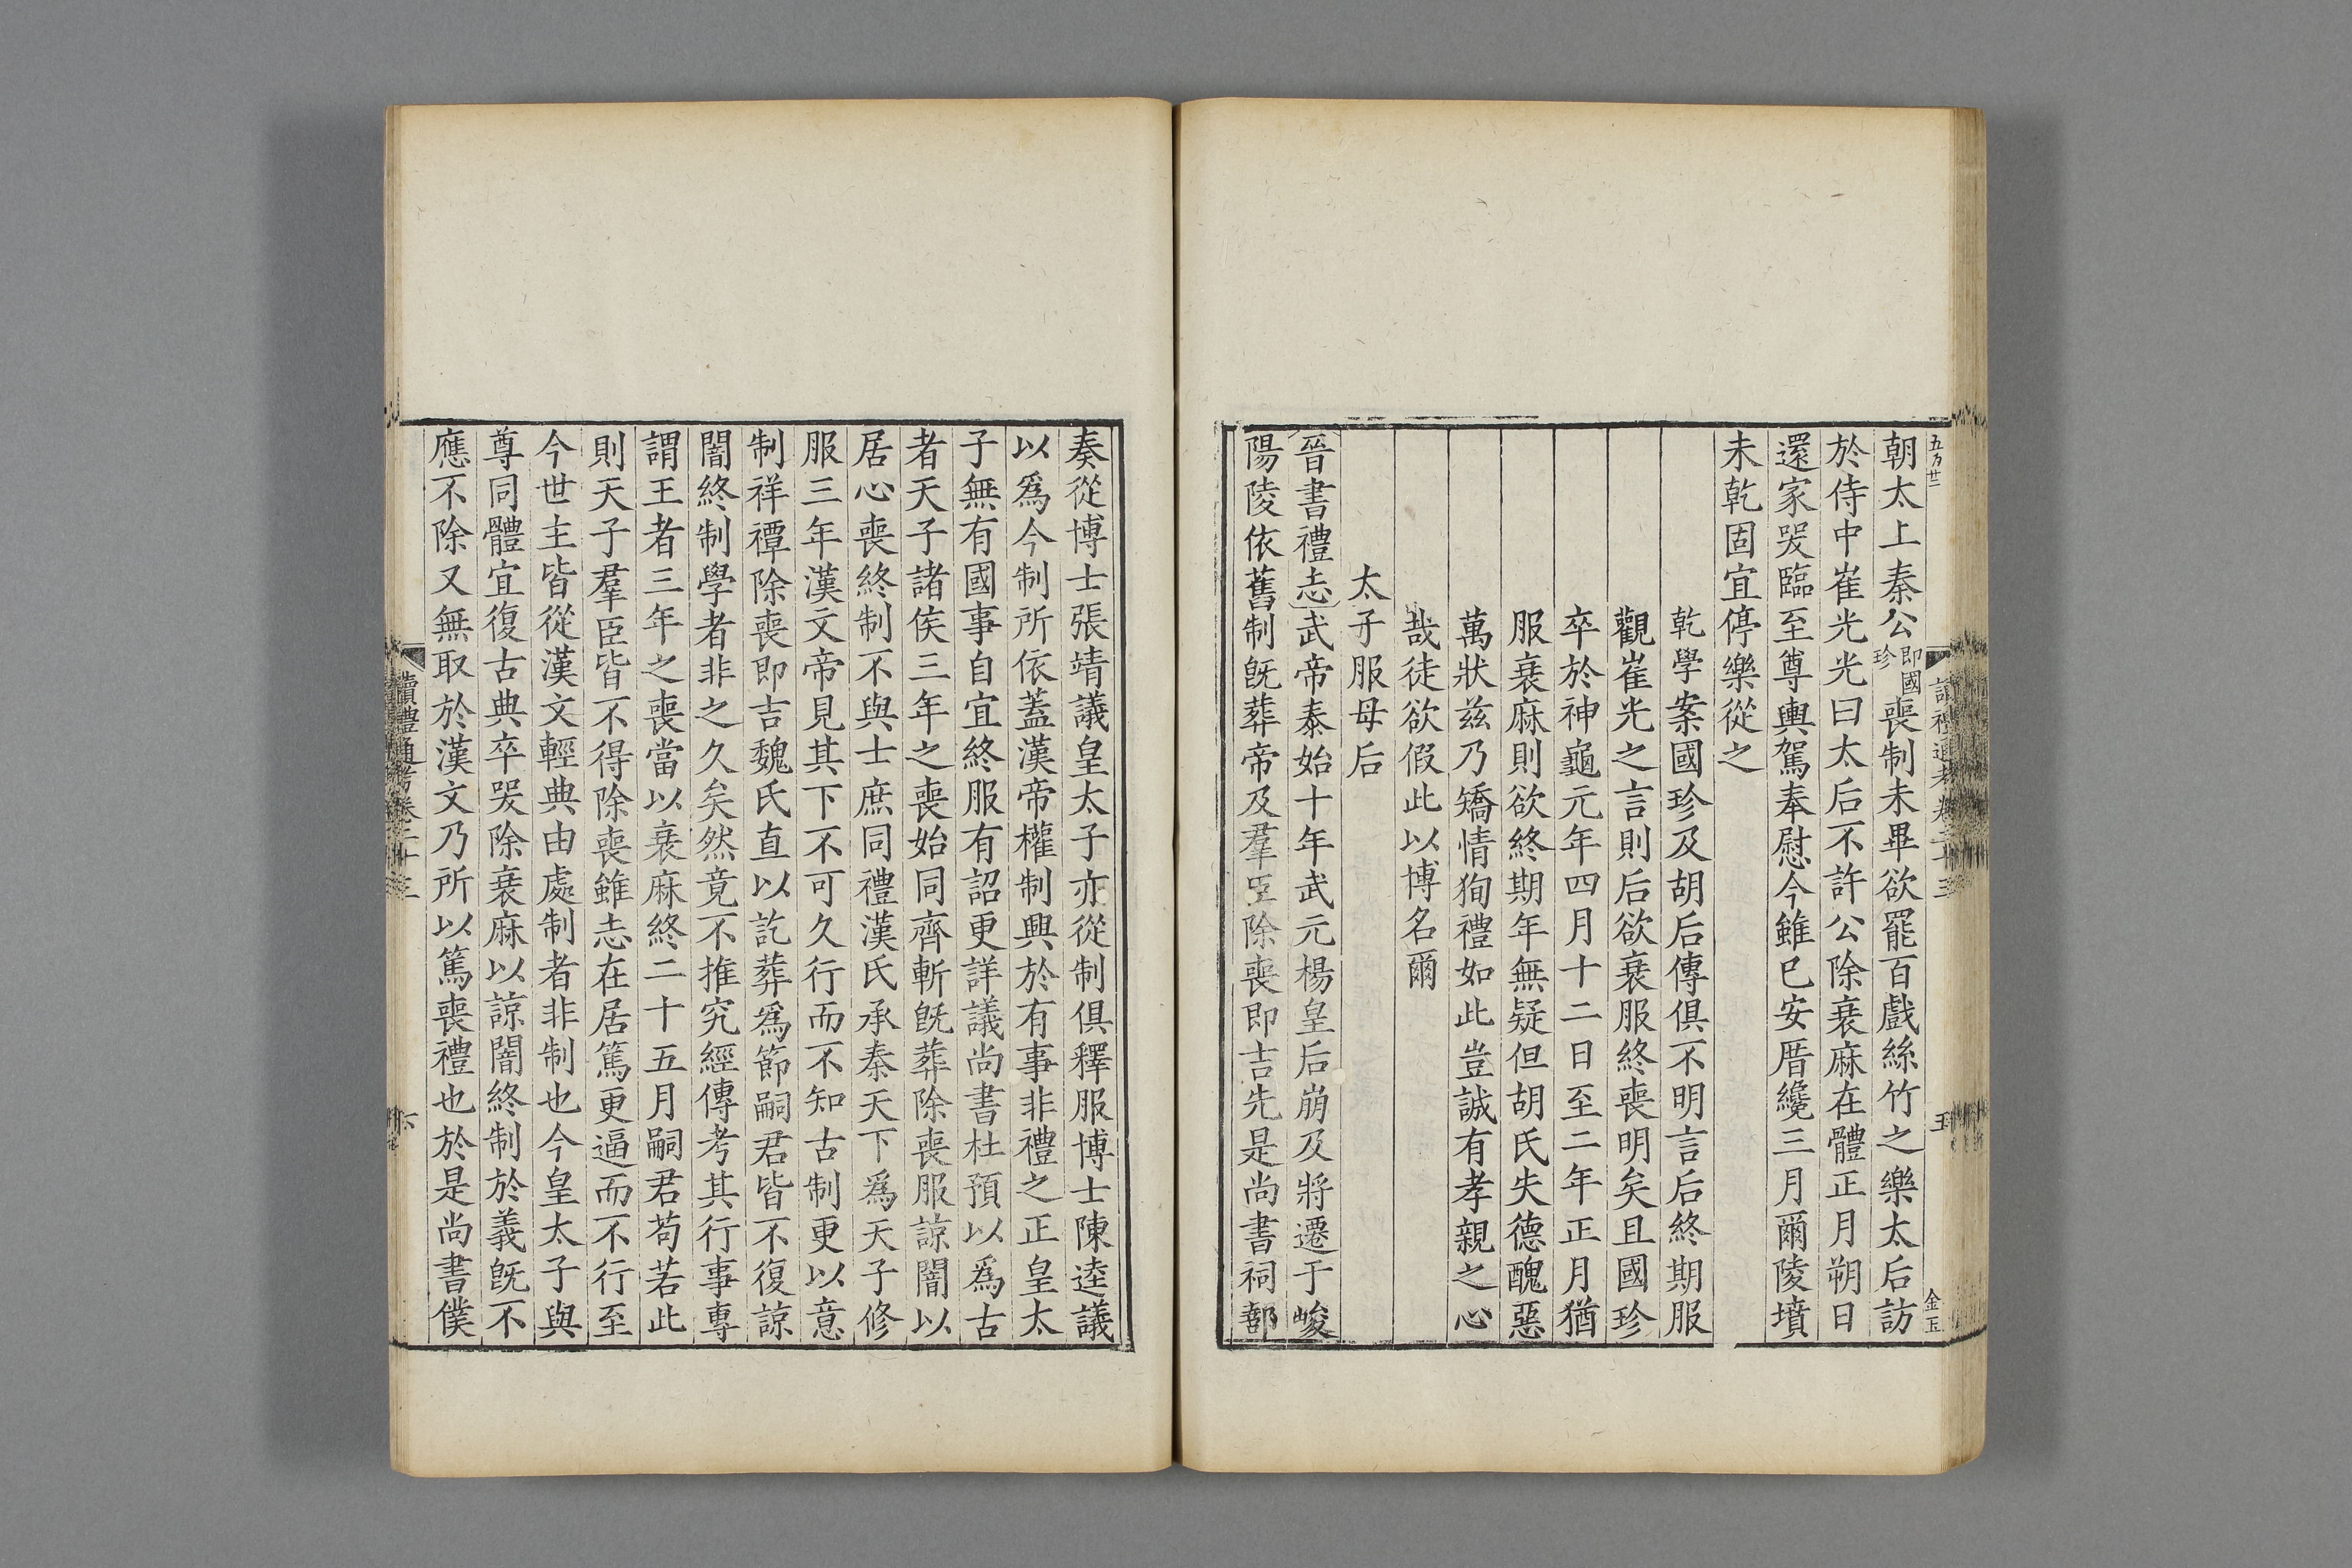 朝太上秦公即國珍喪制未畢欲罷百戲絲竹之樂太后訪
於侍中崔光光曰太后不許公除衰麻在體正月朔日
還家哭臨至尊輿駕奉慰今雖已安厝纔三月爾陵墳
未乾固宜停樂從之
乾學案國珍及胡后傳俱不明言后終期服
觀崔光之言則后欲衰服終喪明矣且國珍
卒於神龜元年四月十二日至二年正月猶
服衰麻則欲終期年無疑但胡氏失德醜惡
萬狀兹乃矯情狥禮如此豈誠有孝親之心
哉徒欲假此以博名爾
太子服母后
晉書禮志武帝泰始十年武元楊皇后崩及將遷于峻
陽陵依舊制旣葬帝及羣臣除喪即吉先是尚書祠部
奏從博士張靖議皇太子亦從制俱釋服博士陳逵議
以爲今制所依蓋漢帝權制興於有事非禮之正皇太
子無有國事自宜終服有詔更詳議尚書杜預以爲古
者天子諸侯三年之喪始同齊斬旣葬除喪服諒闇以
居心喪終制不與士庶同禮漢氏承秦天下爲天子修
服三年漢文帝見其下不可久行而不知古制更以意
制祥禫除喪即吉魏氏直以訖葬爲節嗣君皆不復諒
闇終制學者非之久矣然竟不推究經傳考其行事專
謂王者三年之喪當以衰麻終二十五月嗣君苟若此
則天子羣臣皆不得除喪雖志在居篤更逼而不行至
今世主皆從漢文輕典由處制者非制也今皇太子與
尊同體宜復古典卒哭除衰麻以諒闇終制於義旣不
應不除又無取於漢文乃所以篤喪禮也於是尚書僕
讀禮通考卷二十三
六
五万廿二
讀禮通考卷二十三
五
金玉